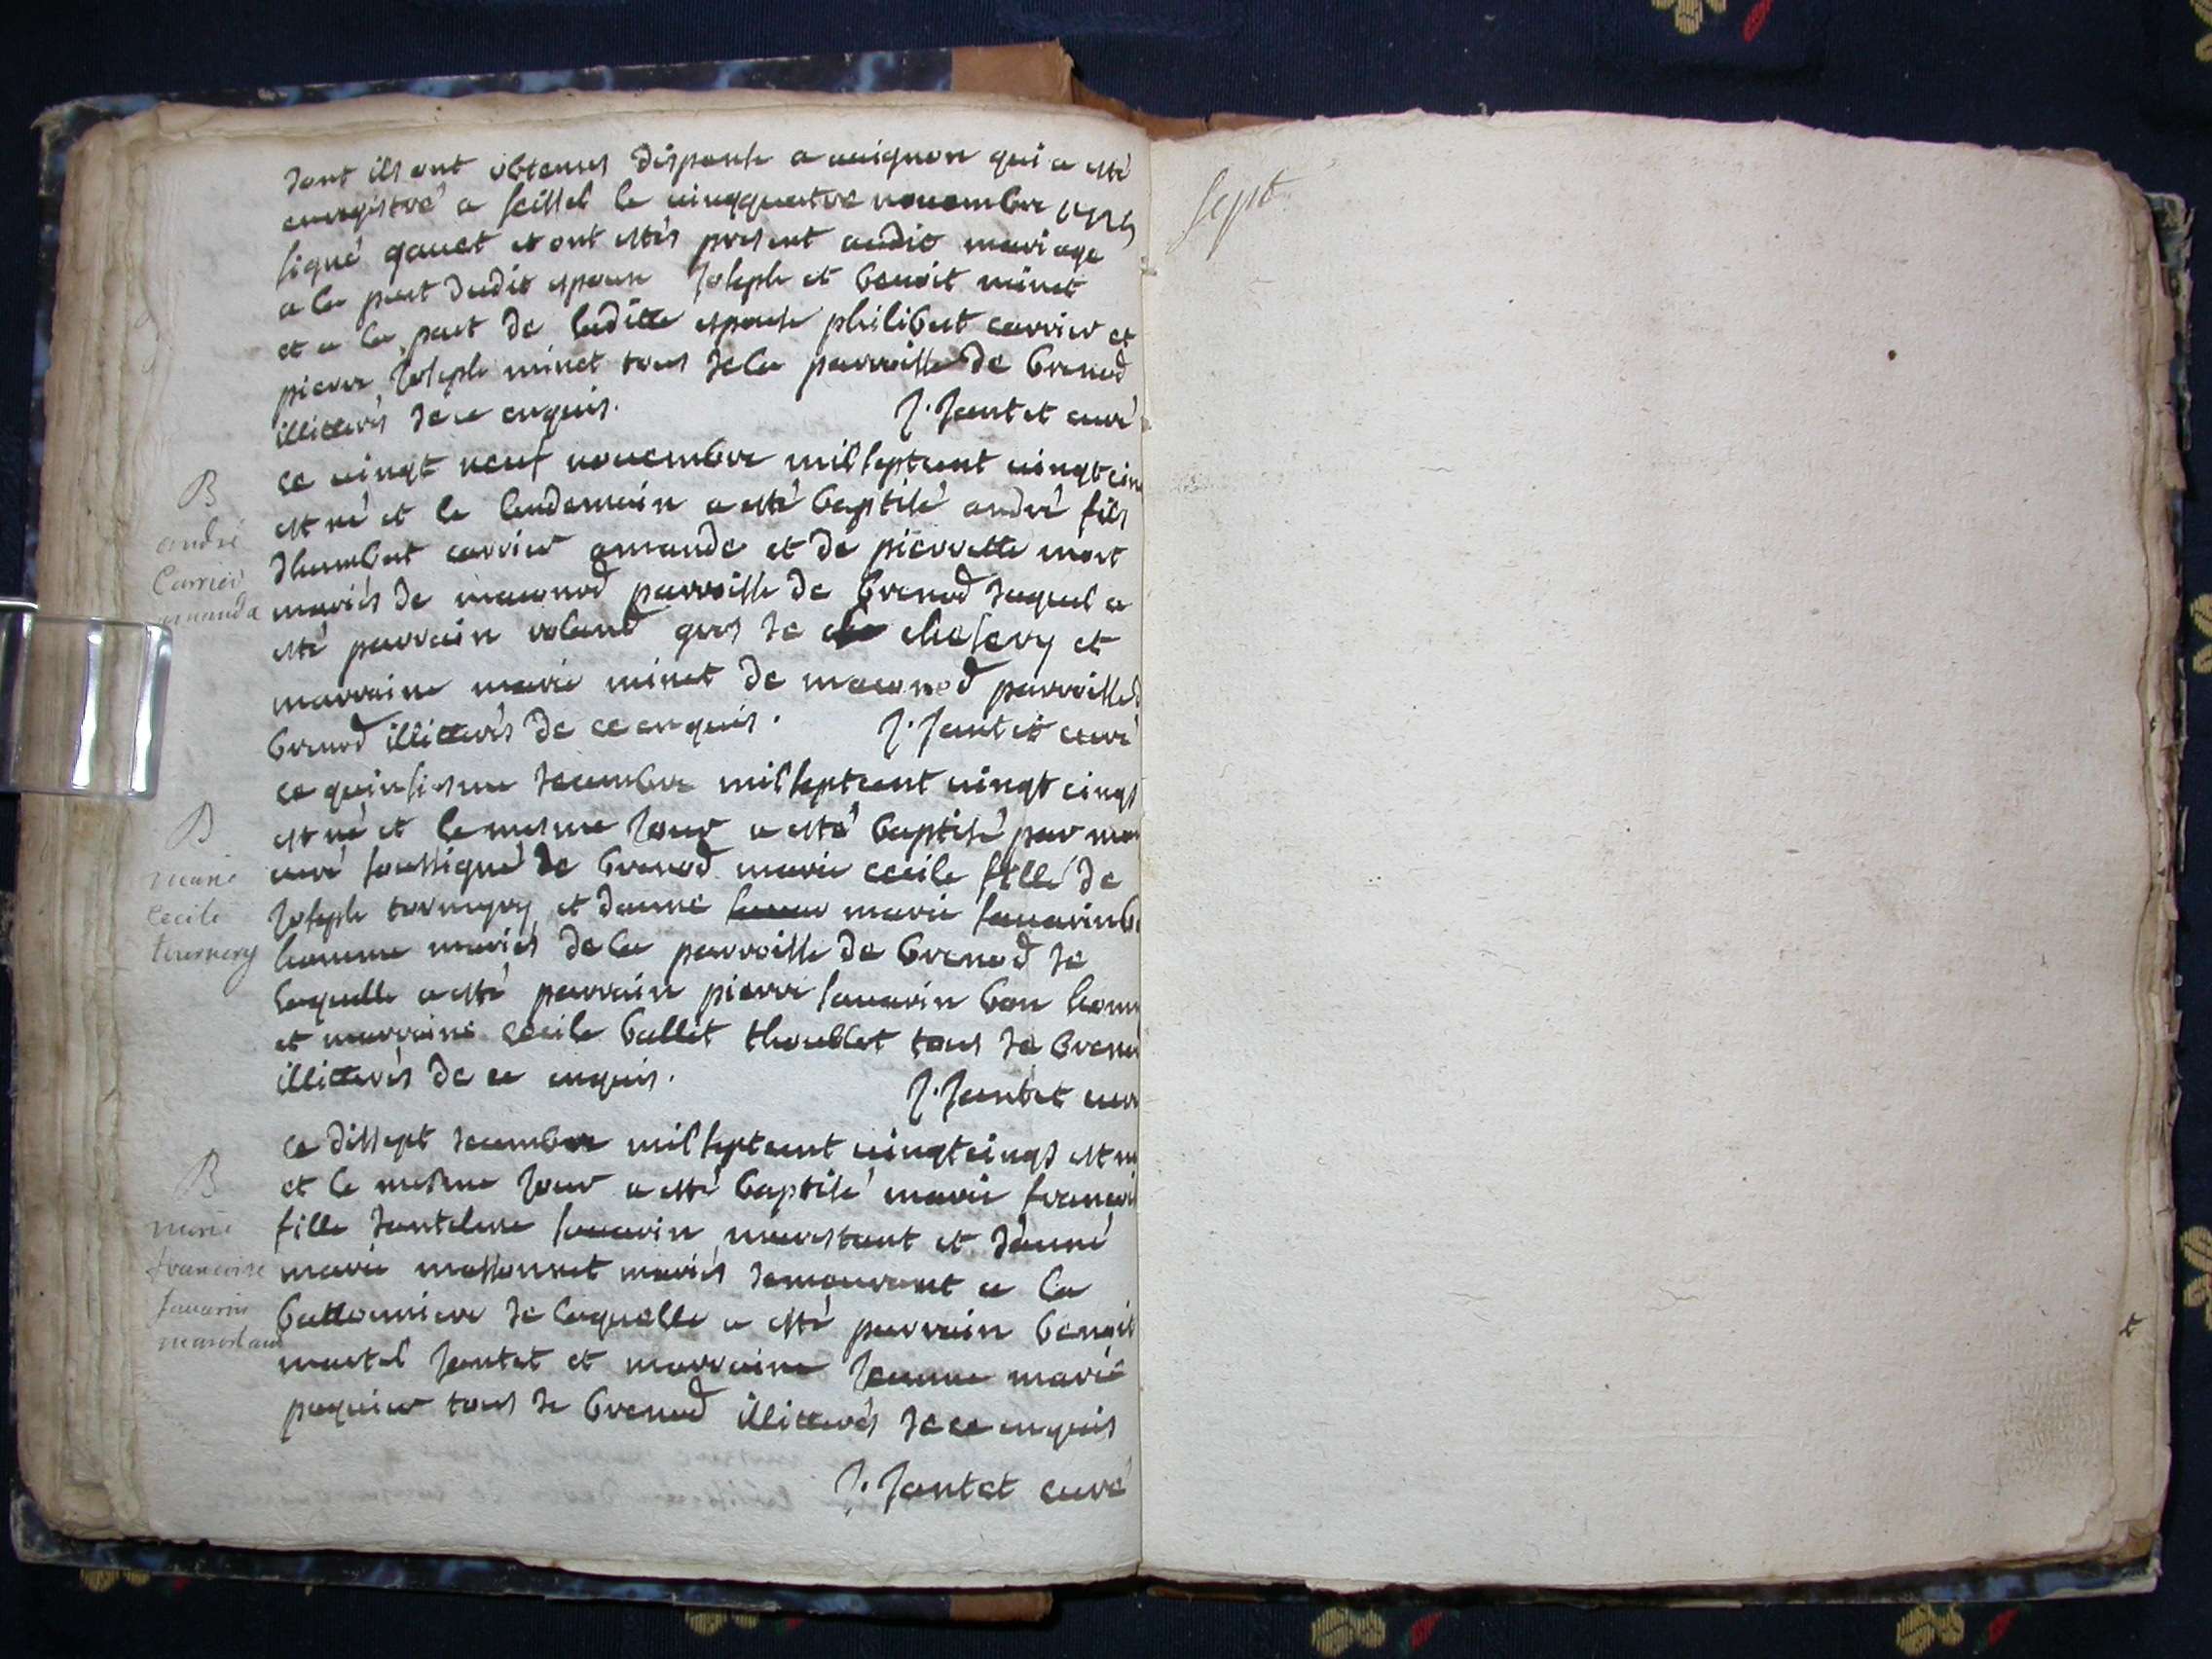 dont ils ont obtenus dispense a auignon qui a esté
enregistré a seissel le uingquatre nouembre 1725
signé gauet et ont estés present audit mariage
a la part dudit espoux Joseph et benoit minet
et a la part de laditte espouse philibert carrier et
pierre Joseph minet tous de la parroisse de brenod
illitterés de ce enquis. J. Jantet curé
B
andré
Carrier
amanda
ce uingt neuf nouembre mil septcent uingt cin
est né et le lendemain a esté baptisé andré fils
dhumbert carrier amande et de pierrette mort
mariés de maconod parroisse de brenod duquel a
esté parrain roland gros de che chesery et
marraine marie minet de maconod parroisse d
brenod illitterés de ce enquis. J. Jantet curé
B
marie
Cecile
tournery
ce quinsiesme decembre mil septcent uingt cinq
est né et le mesme Jour a esté baptisé par mo
curé soussigné de brenod marie cecile fille de
Joseph tornery et danne marie sauarin b
homme mariés de la parroisse de brenod de
laquelle a esté parrain pierre sauarin bon hom
et marraine cecile ballet thoublet tous de breno
illitterés de ce enquis.
J. Jantet cur
B
marie
francoise
sauarin
marestant
ce dissept decembre mil septcent uingtcinq est n
et le mesme Jour a esté baptisé marie francoi
fille dantelme sauarin marestant et danne
marie massonnet mariés demeurant a la
battonniere de laquelle a esté parrain benoit
martel Jantet et marraine Jeanne marie
paquier tous de brenod illitterés de ce enquis
J. Jantet curé
sept